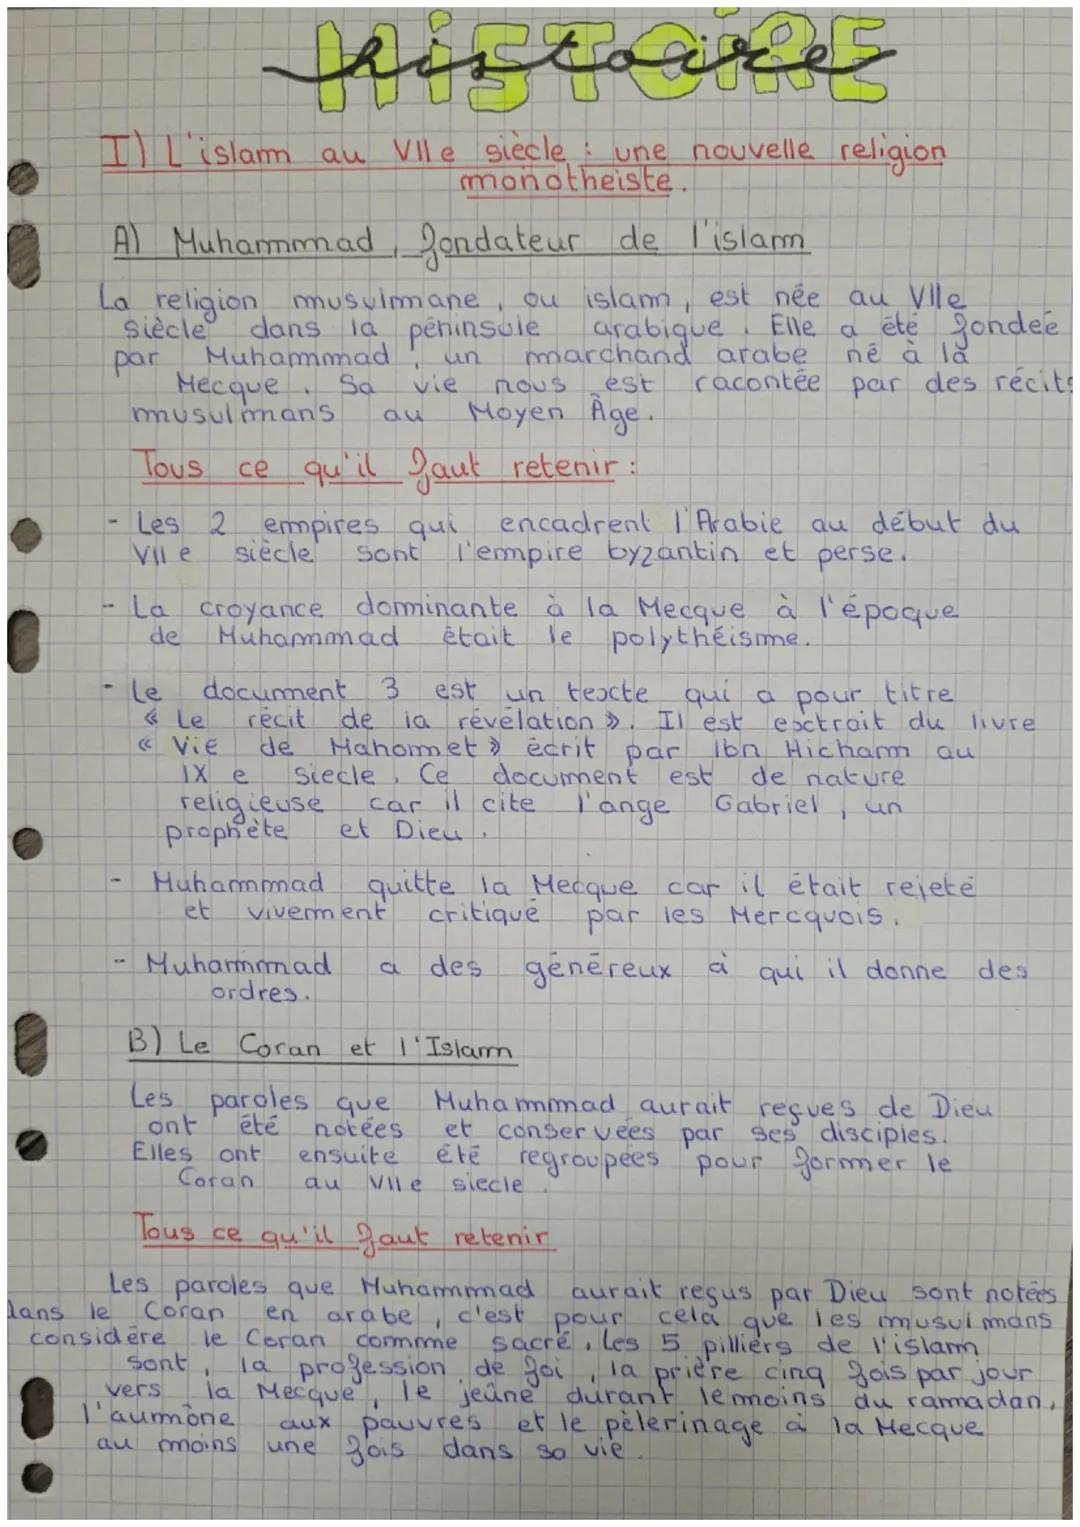 HiSTOiRE
histoire
I) L'islam au VIIe siècle : une nouvelle religion
monotheiste.
A) Muhammad, fondateur de l'islam
La religion musulmane, ou islam, est née au VIIe
siècle dans la péninsule arabique. Elle a été fondée
par Muhammad, un marchand arabe né à la
Mecque. Sa vie nous est racontée par des récits
musulmans au Moyen Âge.
Tous ce qu'il faut retenir :
- Les 2 empires qui encadrent l'Arabie au début du
VIIe siècle sont l'empire byzantin et perse.
- La croyance dominante à la Mecque à l'époque
de Muhammad était le polythéisme.
- Le document 3 est un texte qui a pour titre
« Le récit de la révélation ». Il est extrait du livre
« Vie de Mahomet » écrit par Ibn Hicham au
IX e siecle. Ce document est de nature
religieuse car il cite l'ange Gabriel, un
prophète et Dieu.
- Muhammad quitte la Mecque car il était rejeté
et vivement critiqué par les Mercquois.
- Muhammad a des généreux à qui il donne des
ordres.
B) Le Coran et l'Islam
Les paroles que Muhammad aurait reçues de Dieu
ont été notées et conservées par ses disciples.
Elles ont ensuite été regroupées pour former le
Coran au VIIe siecle.
Tous ce qu'il faut retenir
Les paroles que Muhammad aurait reçus par Dieu sont notées
dans le Coran en arabe, c'est pour cela que les musulmans
considère le Coran comme sacré. Les 5 pilliers de l'islam
sont, la profession de foi, la prière cinq fois par jour
vers la Mecque, le jeûne durant lemoins du ramadan,
l'aumône aux pauvres et le pèlerinage à la Mecque
au moins une fois dans sa vie.